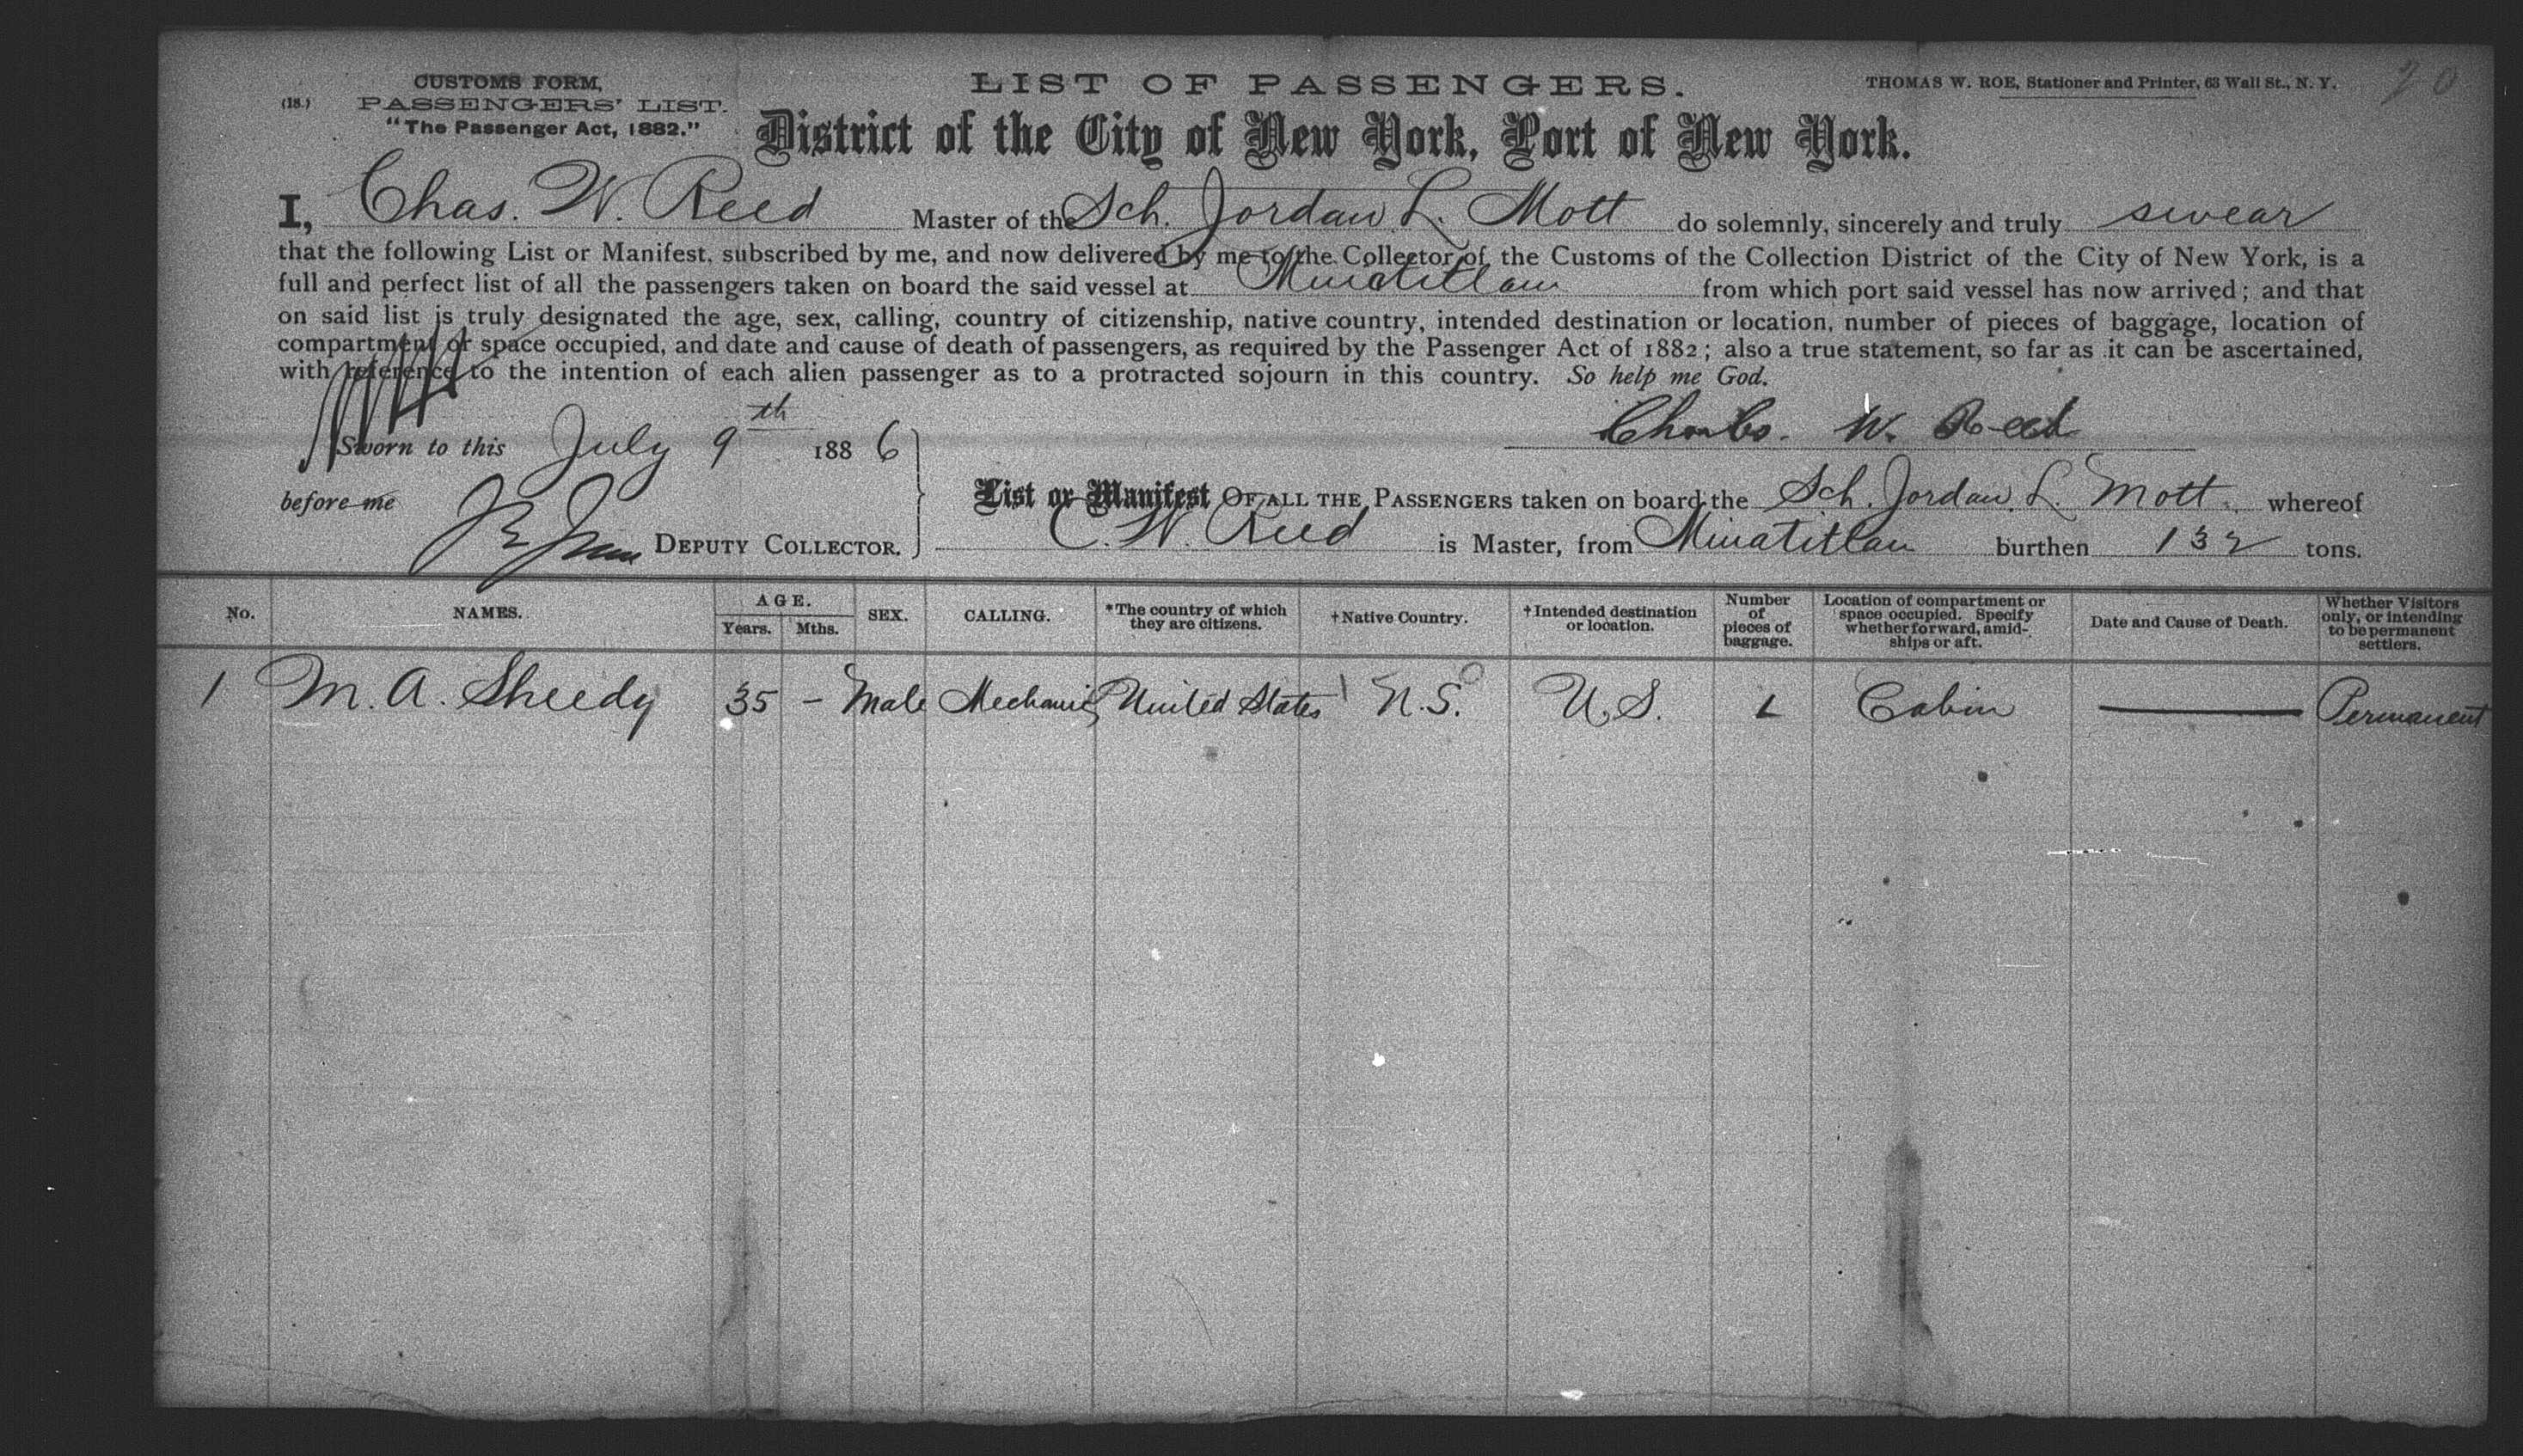 CUSTOMS FORM,
(18.) PASSENGERS' LIST.
"The Passenger Act, 1882."
LIST OF PASSENGERS.
THOMAS W. ROE, Stationer and Printer, 63 Wall St., N. Y.
20
District of the City of New York, Port of New York.
I, Chas. W. Reed Master of the Sch. Jordan L. Mott do solemnly, sincerely and truly swear
that the following List or Manifest, subscribed by me, and now delivered by me to the Collector of the Customs of the Collection District of the City of New York, is a
full and perfect list of all the passengers taken on board the said vessel at Minatitlan from which port said vessel has now arrived; and that
on said list is truly designated the age, sex, calling, country of citizenship, native country, intended destination or location, number of pieces of baggage, location of
compartment or space occupied, and date and cause of death of passengers, as required by the Passenger Act of 1882; also a true statement, so far as it can be ascertained,
with reference to the intention of each alien passenger as to a protracted sojourn in this country. So help me God.
Sworn to this July 9th 1886
Charles. W. Reed
before me
DEPUTY COLLECTOR.
List or Manifest OF ALL THE PASSENGERS taken on board the Sch. Jordan L. Mott whereof
C. W. Reed is Master, from Minatitlan burthen 132 tons.
No. NAMES. AGE. Years. Mths. SEX. CALLING. *The country of which they are citizens. †Native Country. †Intended destination or location. Number of pieces of baggage. Location of compartment or space occupied. Specify whether forward, amidships or aft. Date and Cause of Death. Whether Visitors only, or intending to be permanent settlers.
1 M. A. Sheedy 35 – Male Mechanic United States N.S. U.S. Cabin — Permanent